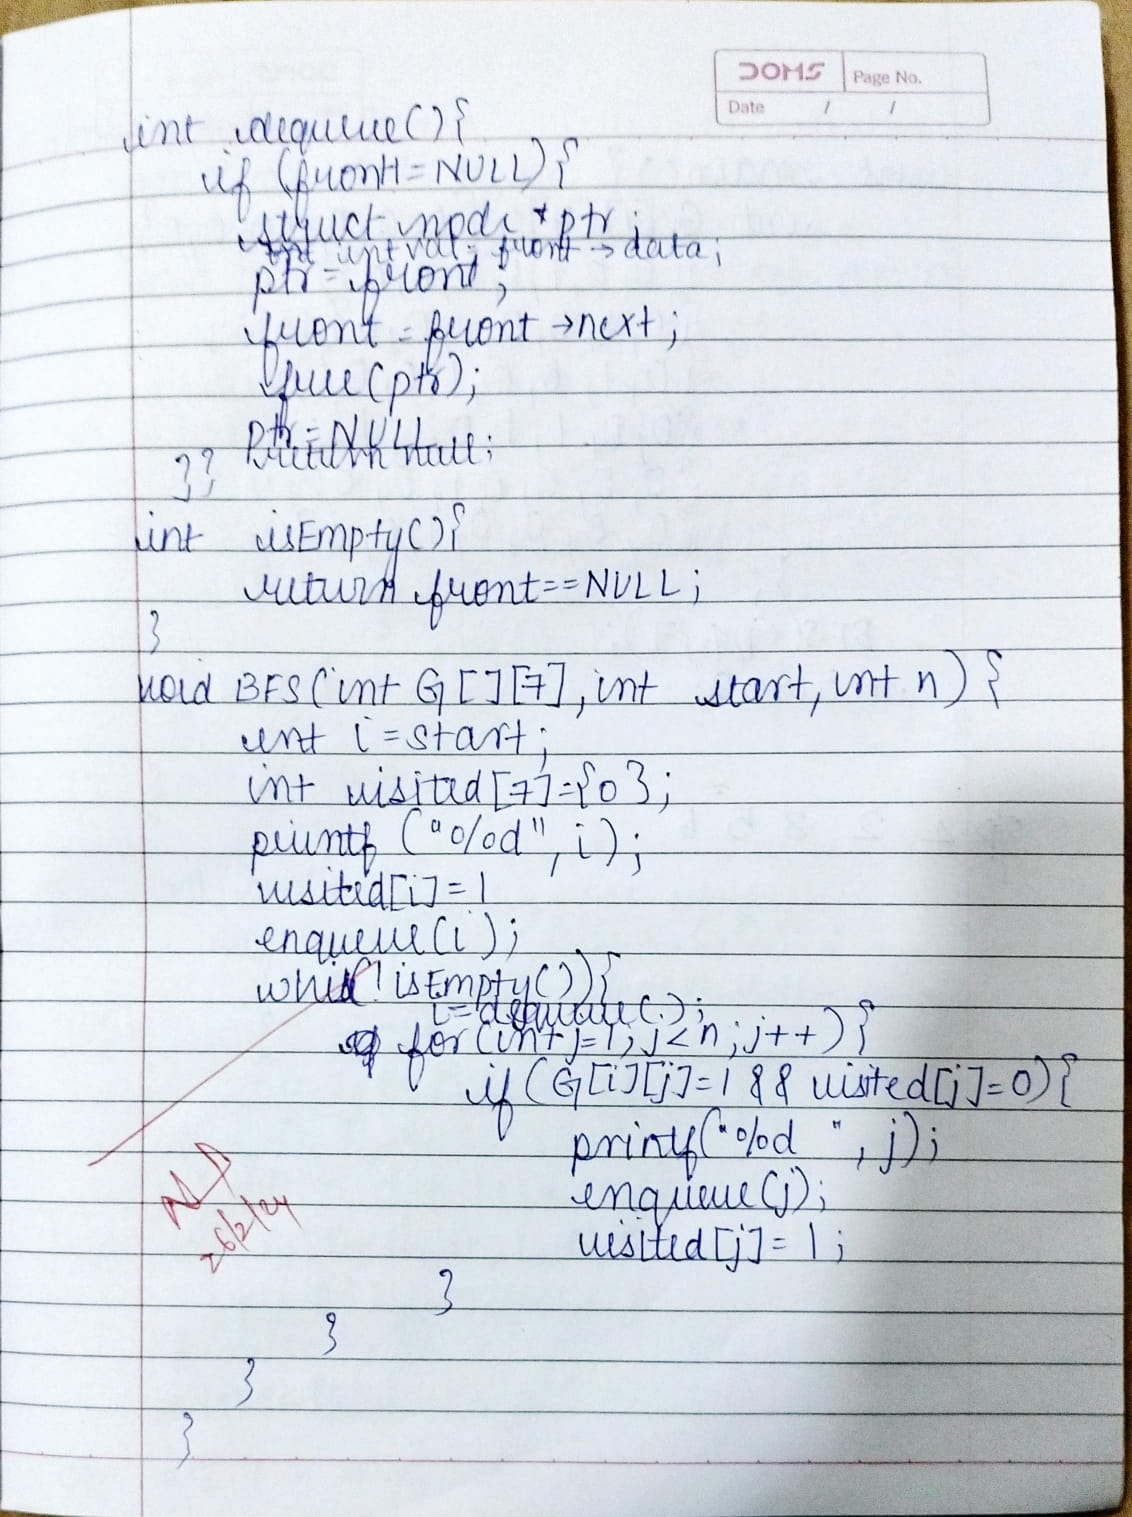 DOMS Page No.
Date / /
int dequeue(){
if (front!=NULL){
struct node *ptr;
int val; front → data;
ptr = front;
front = front →next;
free(ptr);
ptr=NULL
return
}}
int isEmpty(){
return front==NULL;
}
void BFS(int G[][7], int start, int n) {
int i=start;
int visited[7]={0};
printf ("%d", i);
visited[i]=1
enqueue(i);
while(!isEmpty()){
i=dequeue();
for(int j=1; j<n; j++){
if (G[i][j]=1 && visited[j]=0){
printf("%d ", j);
enqueue(j);
visited[j]=1;
}
}
}
}
26/2/24